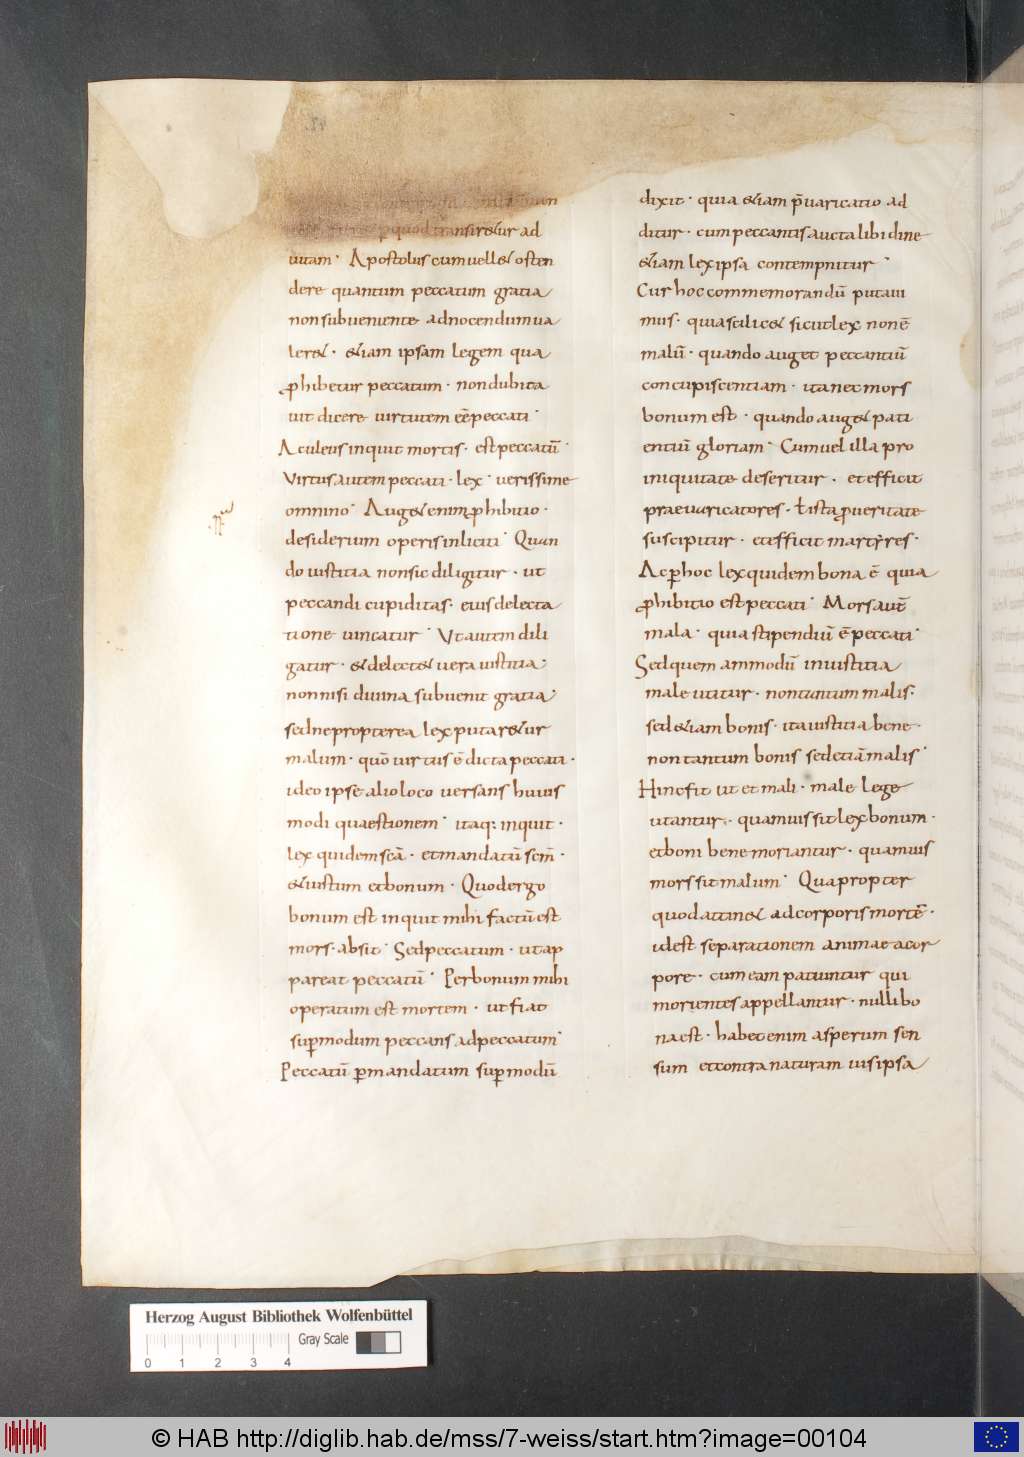 p quod transiretur ad
uitam· Apostolus cum uellet osten
dere quantum peccatum gratia
non subueniente ad nocendum ua
leret· etiam ipsam legem qua
prohibetur peccatum· non dubita
uit dicere uirtutem eē peccati·
Aculeus inquit mortis· est peccatū·
Virtus autem peccati· lex· uerissime
omnino· Auget enim prohibitio·
desiderium operis inliciti· Quan
do iustitia non sic diligitur· ut
peccandi cupiditas· eius delecta
tione uincatur· Ut autem dili
gatur· et delectet uera iustitia;
non nisi diuina subuenit gratia;
sed ne propterea lex putaretur
malum· quō uirtus ē dicta peccati·
ideo ipse alio loco uersans huius
modi quaestionem· itaq; inquit·
lex quidem scā· et mandatū scm̄·
et iustum et bonum· Quod ergo
bonum est inquit mihi factū est
mors· absit· Sed peccatum· ut ap
pareat peccatū· Per bonum mihi
operatum est mortem· ut fiat
supmodum peccans ad peccatum·
Peccatū p mandatum supmodū
dixit· quia etiam p̄uaricatio ad
ditur· cum peccantis aucta libidine
etiam lex ipsa contempnitur·
Cur hoc commemorandū putaui
mus· quia scilicet sicut lex non ē
malū· quando auget peccantiū
concupiscentiam· ita nec mors
bonum est· quando auget pati
entiū gloriam· Cum uel illa pro
iniquitate deseritur· et efficit
praeuaricatores· ł ista pro ueritate
suscipitur· et efficit martyres·
Ac p hoc lex quidem bona ē quia
prohibitio est peccati· Mors aūt
mala· quia stipendiū ē peccati·
Sed quem ammodū iniustitia
male utitur· non tantum malis·
sed etiam bonis· ita iustitia bene·
non tantum bonis sed etiā malis·
Hinc fit ut et mali· male lege
utantur· quamuis sit lex bonum·
et boni bene moriantur· quamuis
mors sit malum· Quapropter
quod attinet ad corporis mortē·
id est separationem animae a cor
pore· cum eam patiuntur qui
morientes appellantur· nulli bo
na est· habet enim asperum sen
sum et contra naturam uis ipsa
Herzog August Bibliothek Wolfenbüttel
Gray Scale
0 1 2 3 4
© HAB http://diglib.hab.de/mss/7-weiss/start.htm?image=00104